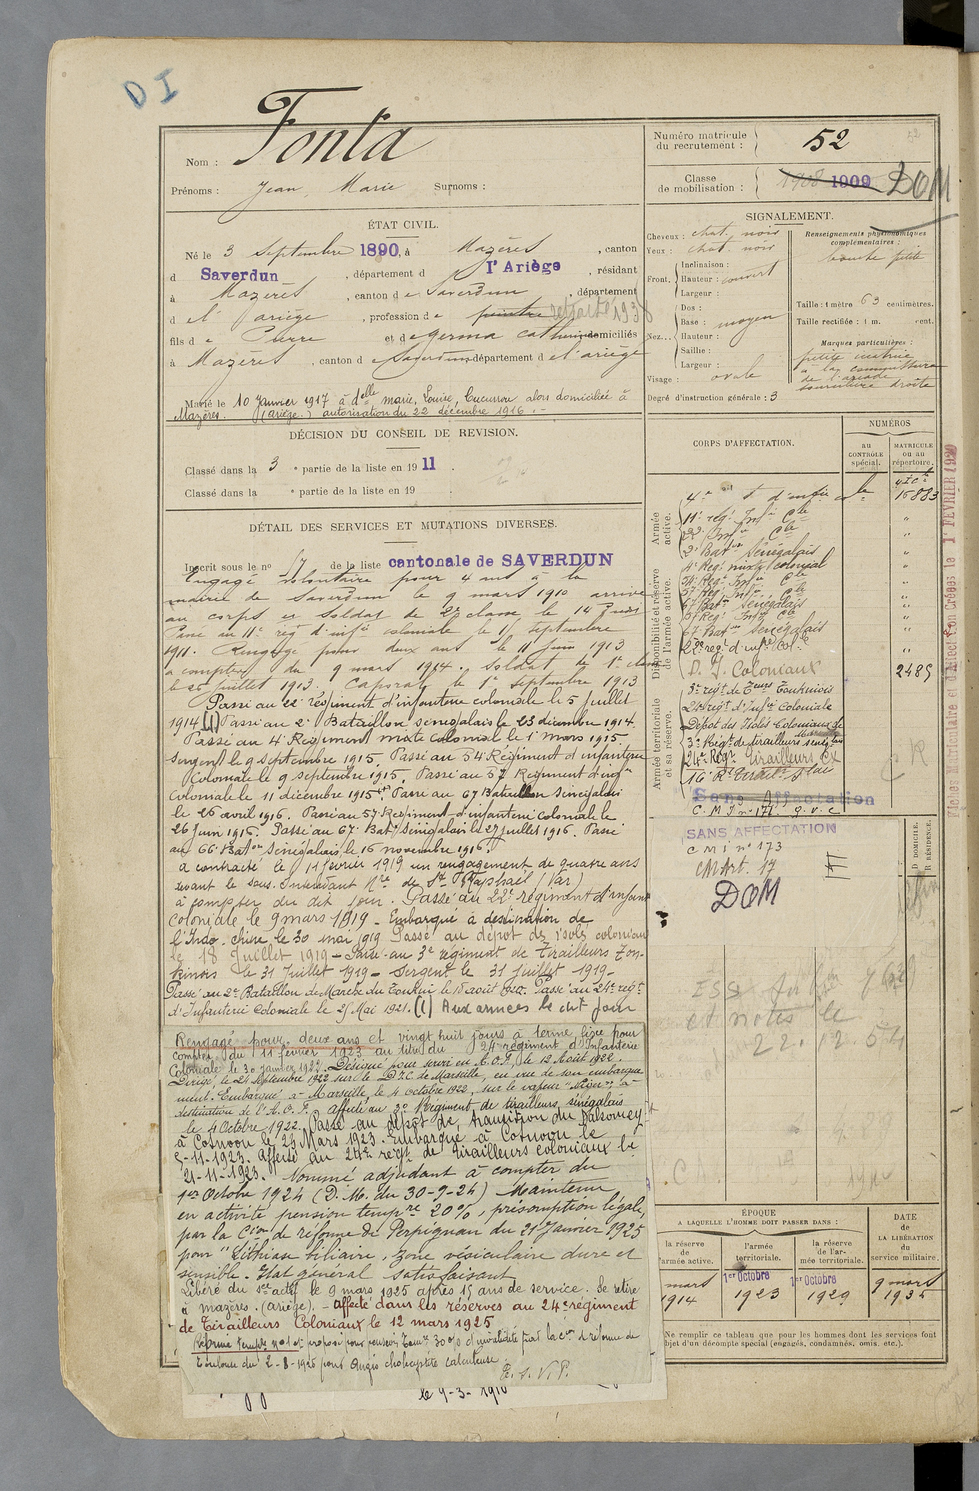 D I
Nom : Fonta
Prénoms : Jean, Marie Surnoms :
Numéro matricule du recrutement : 52
Classe de mobilisation : 1908 1909 DOM
ÉTAT CIVIL.
Né le 3 Septembre 1890, à Mazères, canton
d Saverdun, département d l'Ariège, résidant
à Mazères, canton de Saverdun, département
d e l'ariège, profession de peintre retraité 1938
fils de Pierre et de germa Catherine domiciliés
à Mazères, canton de Saverdun département de l'ariège
Marié le 10 Janvier 1917 à delle marie, Louise, alors domiciliée à
Mazères. (ariège.) autorisation du 22 décembre 1916. -
DÉCISION DU CONSEIL DE REVISION.
Classé dans la 3 e partie de la liste en 1911.
Classé dans la e partie de la liste en 19 .
DÉTAIL DES SERVICES ET MUTATIONS DIVERSES.
Inscrit sous le no 17 de la liste cantonale de SAVERDUN
Engagé volontaire pour 4 ans à la
mairie de Saverdun le 9 mars 1910 arrivé
au corps et Soldat de 2e classe le 14 mars
Passé au 11e rég d'infie coloniale le 11 septembre
1911. Rengagé pour deux ans le 11 Juin 1913
à compter du 9 mars 1914. Soldat de 1e classe
le 26 juillet 1913. Caporal le 1er septembre 1913
Passé au 22e régiment d'infanterie coloniale le 5 juillet
1914 (1) Passé au 2e Bataillon sénégalais le 23 décembre 1914
Passé au 4e Régiment mixte Colonial le 1er mars 1915
sergent le 9 septembre 1915. Passé au 54e Régiment d'infanterie
Coloniale le 9 septembre 1915. Passé au 57 Régiment d'infie
Coloniale le 11 décembre 1915. Passé au 67 Bataillon Sénégalais
le 26 avril 1916. Passé au 57e Régiment d'infanterie coloniale le
26 juin 1916. Passé au 67e Baton Sénégalais le 27 juillet 1916. Passé
au 66e Baton Sénégalais le 16 novembre 1916.
a contracté le 11 février 1919 un rengagement de quatre ans
devant le sous-Intendant Mre de St Raphaël (Var)
à compter du dit jour. Passé au 22e régiment d'infanterie
coloniale le 9 mars 1919 - Embarqué à destination de
l'Indo-chine le 30 mai 1919 Passé au dépôt des isolés coloniaux
le 18 juillet 1919 - Passé au 3e régiment de Tirailleurs Ton-
kinois le 31 juillet 1919 - Sergent le 31 juillet 1919 -
Passé au 2e Bataillon de Marche du Tonkin le 15 août 1920. Passé au 21e régt
d'Infanterie Coloniale le 25 Mai 1921. (1) Aux armées le dit jour
Rengagé pour deux ans et vingt huit jours à terme fixe pour
compter du 11 février 1923 au titre du 24e régiment d'Infanterie
Coloniale le 30 janvier 1922. Désigné pour servir en A.O.F. le 12 Août 1922.
Dirigé le 24 Septembre 1922 sur le D.I.C. de Marseille, en vue de son embarque
ment. Embarqué à Marseille, le 4 octobre 1922, sur le vapeur "Niger" à
destination de l'A.O.F. affecté au 3e Régiment de tirailleurs sénégalais
le 4 Octobre 1922. Passé au dépôt de transition du Dahomey
à Cotonou le 25 Mars 1923. Embarqué à Cotonou le
5-11-1923. Affecté au 24e régt de Tirailleurs coloniaux le
21-11-1923. Nommé adjudant à compter du
1er Octobre 1924 (D.M. du 30-9-24) Maintenu
en activité pension tempre 20%, présomption légale,
par la Cion de réforme de Perpignan du 21 Janvier 1925
pour "Lithiase biliaire, zone vésiculaire dure et
sensible. Etat général satisfaisant
Libéré du sce actif le 9 mars 1925 après 15 ans de service. Se retire
à mazères. (ariège). - affecté dans les réserves au 24e régiment
de Tirailleurs Coloniaux le 12 mars 1925
Réformé tempre no 1 et proposé pour pension tempre 30% d'invalidité par la Cion de réforme de
Toulouse du 2-8-1926 pour Angio cholécystite calculeuse
T. S. V. P.
le 9-3-1910
SIGNALEMENT.
Cheveux : chat. noir
Yeux : chat. noir
Front. Inclinaison :
Hauteur : couvert
Largeur :
Nez... Dos :
Base : moyen
Hauteur :
Saillie :
Largeur :
Visage : ovale
Renseignements physionomiques complémentaires :
bouche petite
Taille : 1 mètre 63 centimètres.
Taille rectifiée : 1 m. cent.
Marques particulières :
petite cicatrice
à la commissure
de l'arcade
sourcilière droite
Degré d'instruction générale : 3
CORPS D'AFFECTATION.
NUMÉROS
au CONTRÔLE spécial.
MATRICULE ou au répertoire.
Armée active.
Disponibilité et réserve de l'armée active.
Armée territoriale et sa réserve.
4e rt d'infie cole 15883
11e rég. Infie Cle "
22e Infie Cle "
2e Baton Sénégalais "
4e Régt mixte colonial "
54e Régt Infie Cle "
57 Régt Infie Cle "
67 Baton Sénégalais "
57 Régt Infie Cle "
67 Baton Sénégalais "
22e régt d'infie Cole "
D. I. Coloniaux 2485
3e régt de Tirrs Tonkinois
21e Régt d'Infie Coloniale
Dépôt des Isolés Coloniaux de Marseille
3e Régt de tirailleurs sénégalais
24e Régt Tirailleurs Cx
16e Rt Tirail. Slais
Sans Affectation
SANS AFFECTATION
C M I no 173
CM Art. 17
DOM
C R
Fichier Matriculaire et d'Affection Créées le 1er FEVRIER 1930
D DOMICILE.
R RÉSIDENCE.
et notes le
22.12.54
ÉPOQUE
A LAQUELLE L'HOMME DOIT PASSER DANS :
la réserve de l'armée active.
l'armée territoriale.
la réserve de l'armée territoriale.
DATE de LA LIBÉRATION du service militaire.
mars 1914
1er Octobre 1923
1er Octobre 1929
9 mars 1935
Ne remplir ce tableau que pour les hommes dont les services font
objet d'un décompte spécial (engagés, condamnés, omis, etc.).